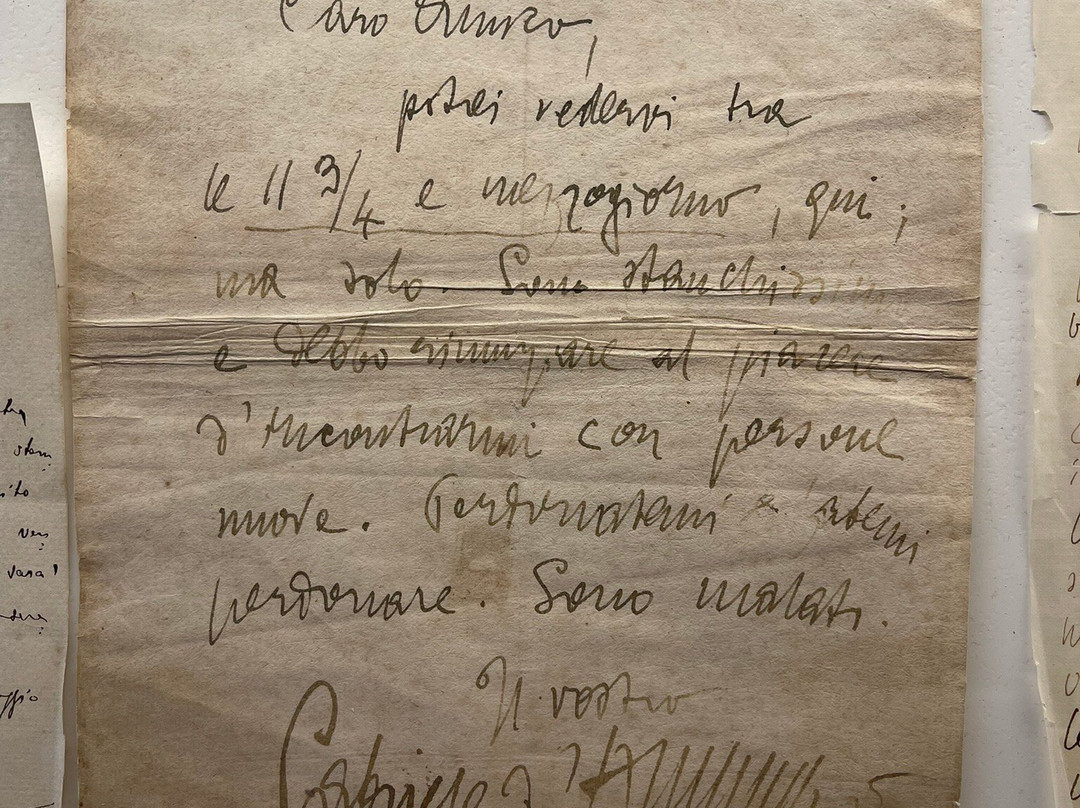 Caro
potrei vedervi tra
le 11 3/4 e mezzogiorno, qui;
ma solo. Sono stanchissimo
e debbo rinunziare al piacere
d'incontrarmi con persone
nuove. Perdonatemi e fatemi
perdonare. Sono malato.
Il vostro
Gabriele d'Annunzio